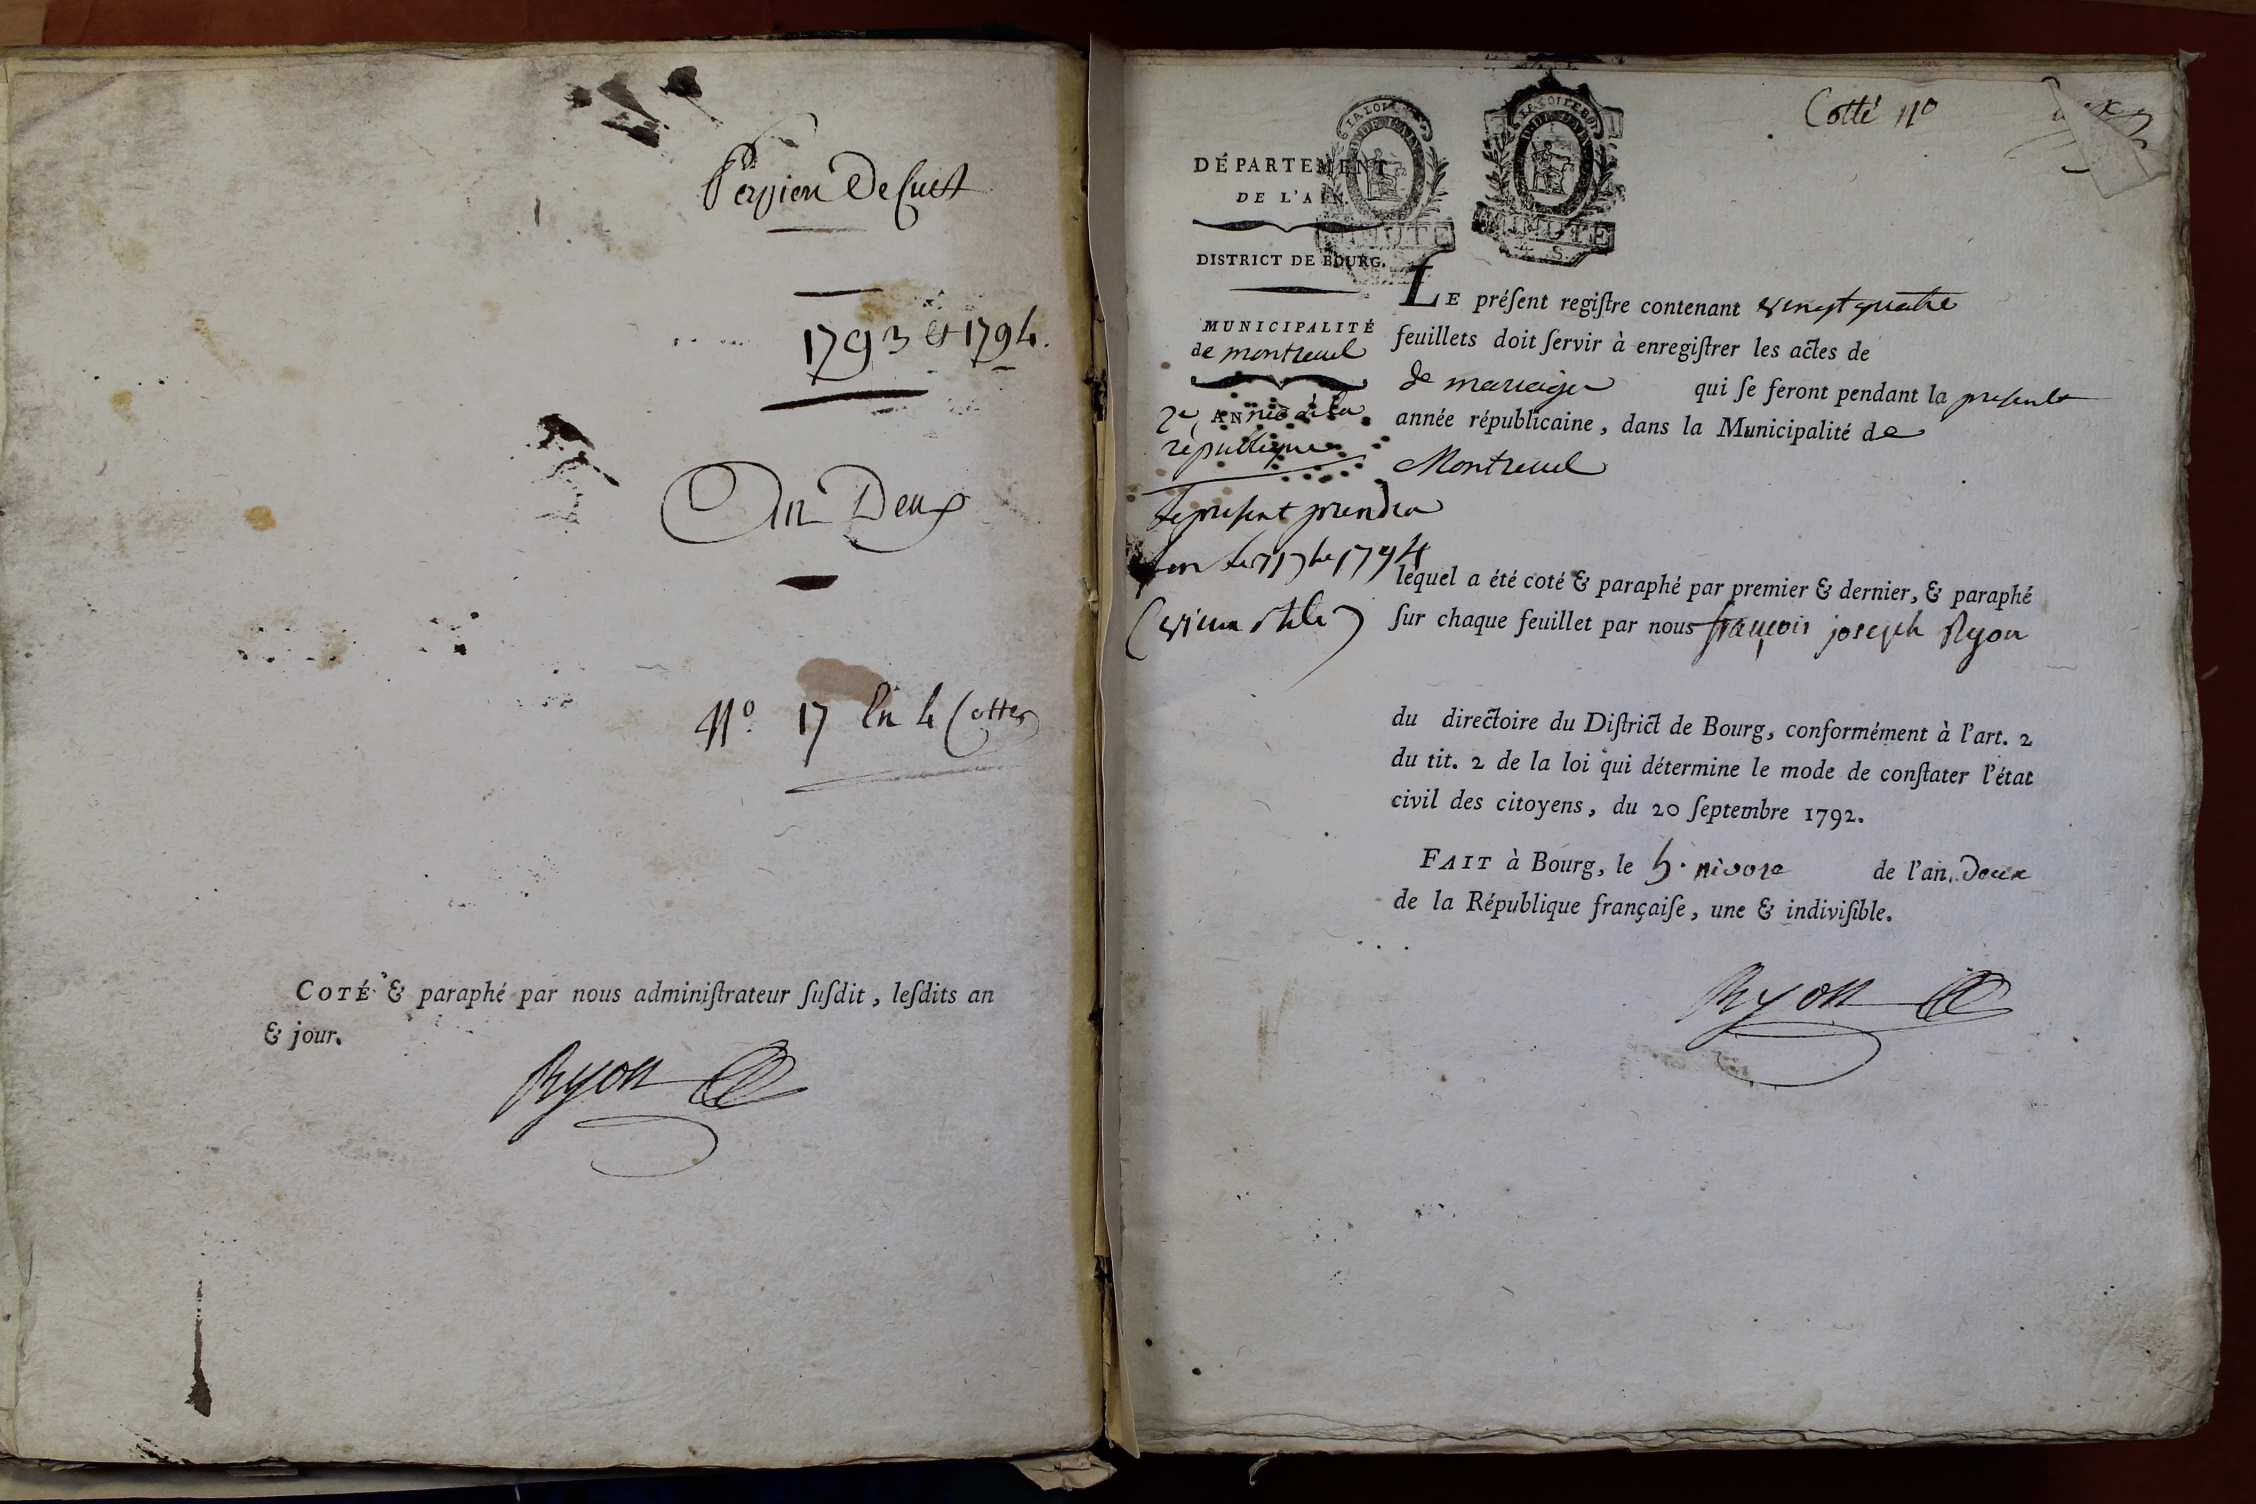 1793 & 1794.
An Deux
N.º 17 En 4 Cottes
COTÉ & paraphé par nous adminiſtrateur ſuſdit, leſdits an
& jour.
Ryon
Cotté Nº
LA LOI
LA LOI
MINUTE
MINUTE
DÉPARTEMENT
DE L'AIN.
DISTRICT DE BOURG.
MUNICIPALITÉ
de montreuel
2e ANnée de la
republique
le present prendra
(vieux stile)
LE préſent regiſtre contenant vingt quatre
feuillets doit ſervir à enregiſtrer les actes de
de mariage qui ſe feront pendant la presente
année républicaine, dans la Municipalité de
Montreuel
lequel a été coté & paraphé par premier & dernier, & paraphé
ſur chaque feuillet par nous françois joseph Ryon
du directoire du Diſtrict de Bourg, conformément à l'art. 2
du tit. 2 de la loi qui détermine le mode de conſtater l'état
civil des citoyens, du 20 ſeptembre 1792.
FAIT à Bourg, le 5. nivose de l'an. Deux
de la République françaiſe, une & indiviſible.
Ryon